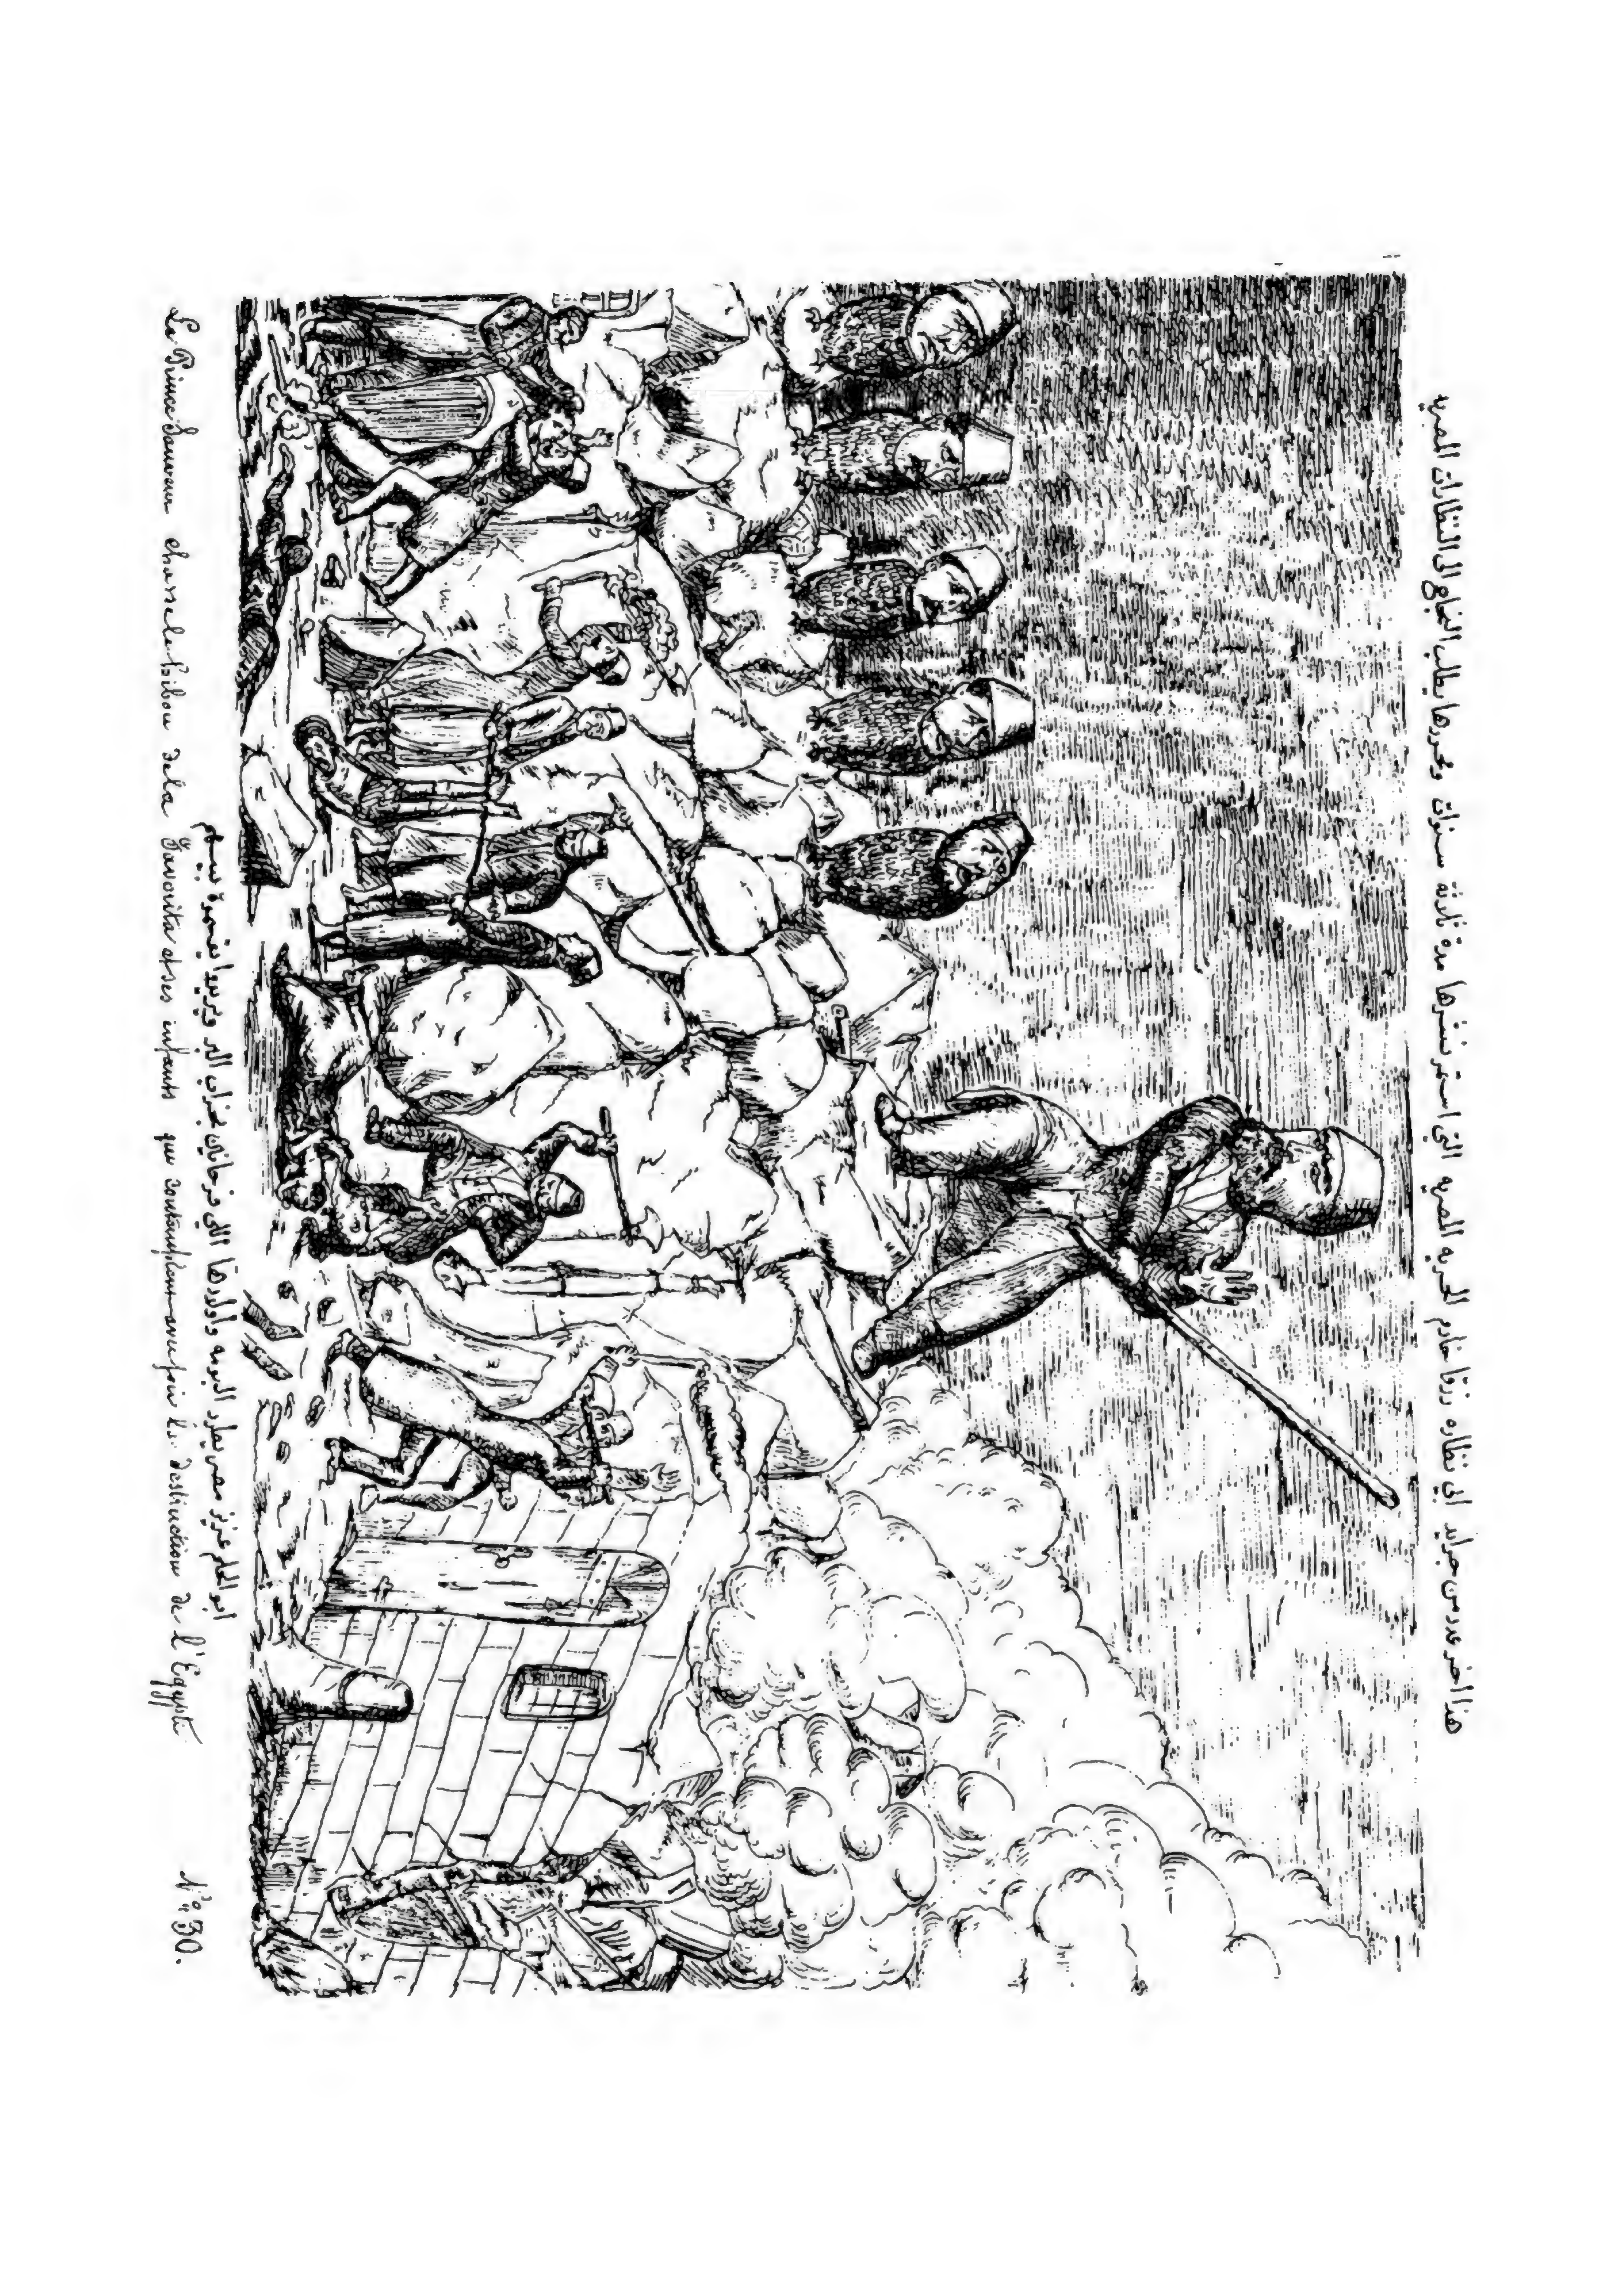 هذا اخر عدد من جرايد ابي نظاره زرقا خادم الحريه المصريه التي استمر نشرها مدة ثلاثة سنوات ومحررها يطلب النجاح الى النظارات المصريه
ابو الحلم عزيز مصر يطرد البومه واولادها اللي فرحانين بخراب البر ويريدوا
Le Prince Sauveur chasse le hibou de la Favorita et ses enfants qui contemplaient avec joie la destruction de l'Egypte
N° 30.